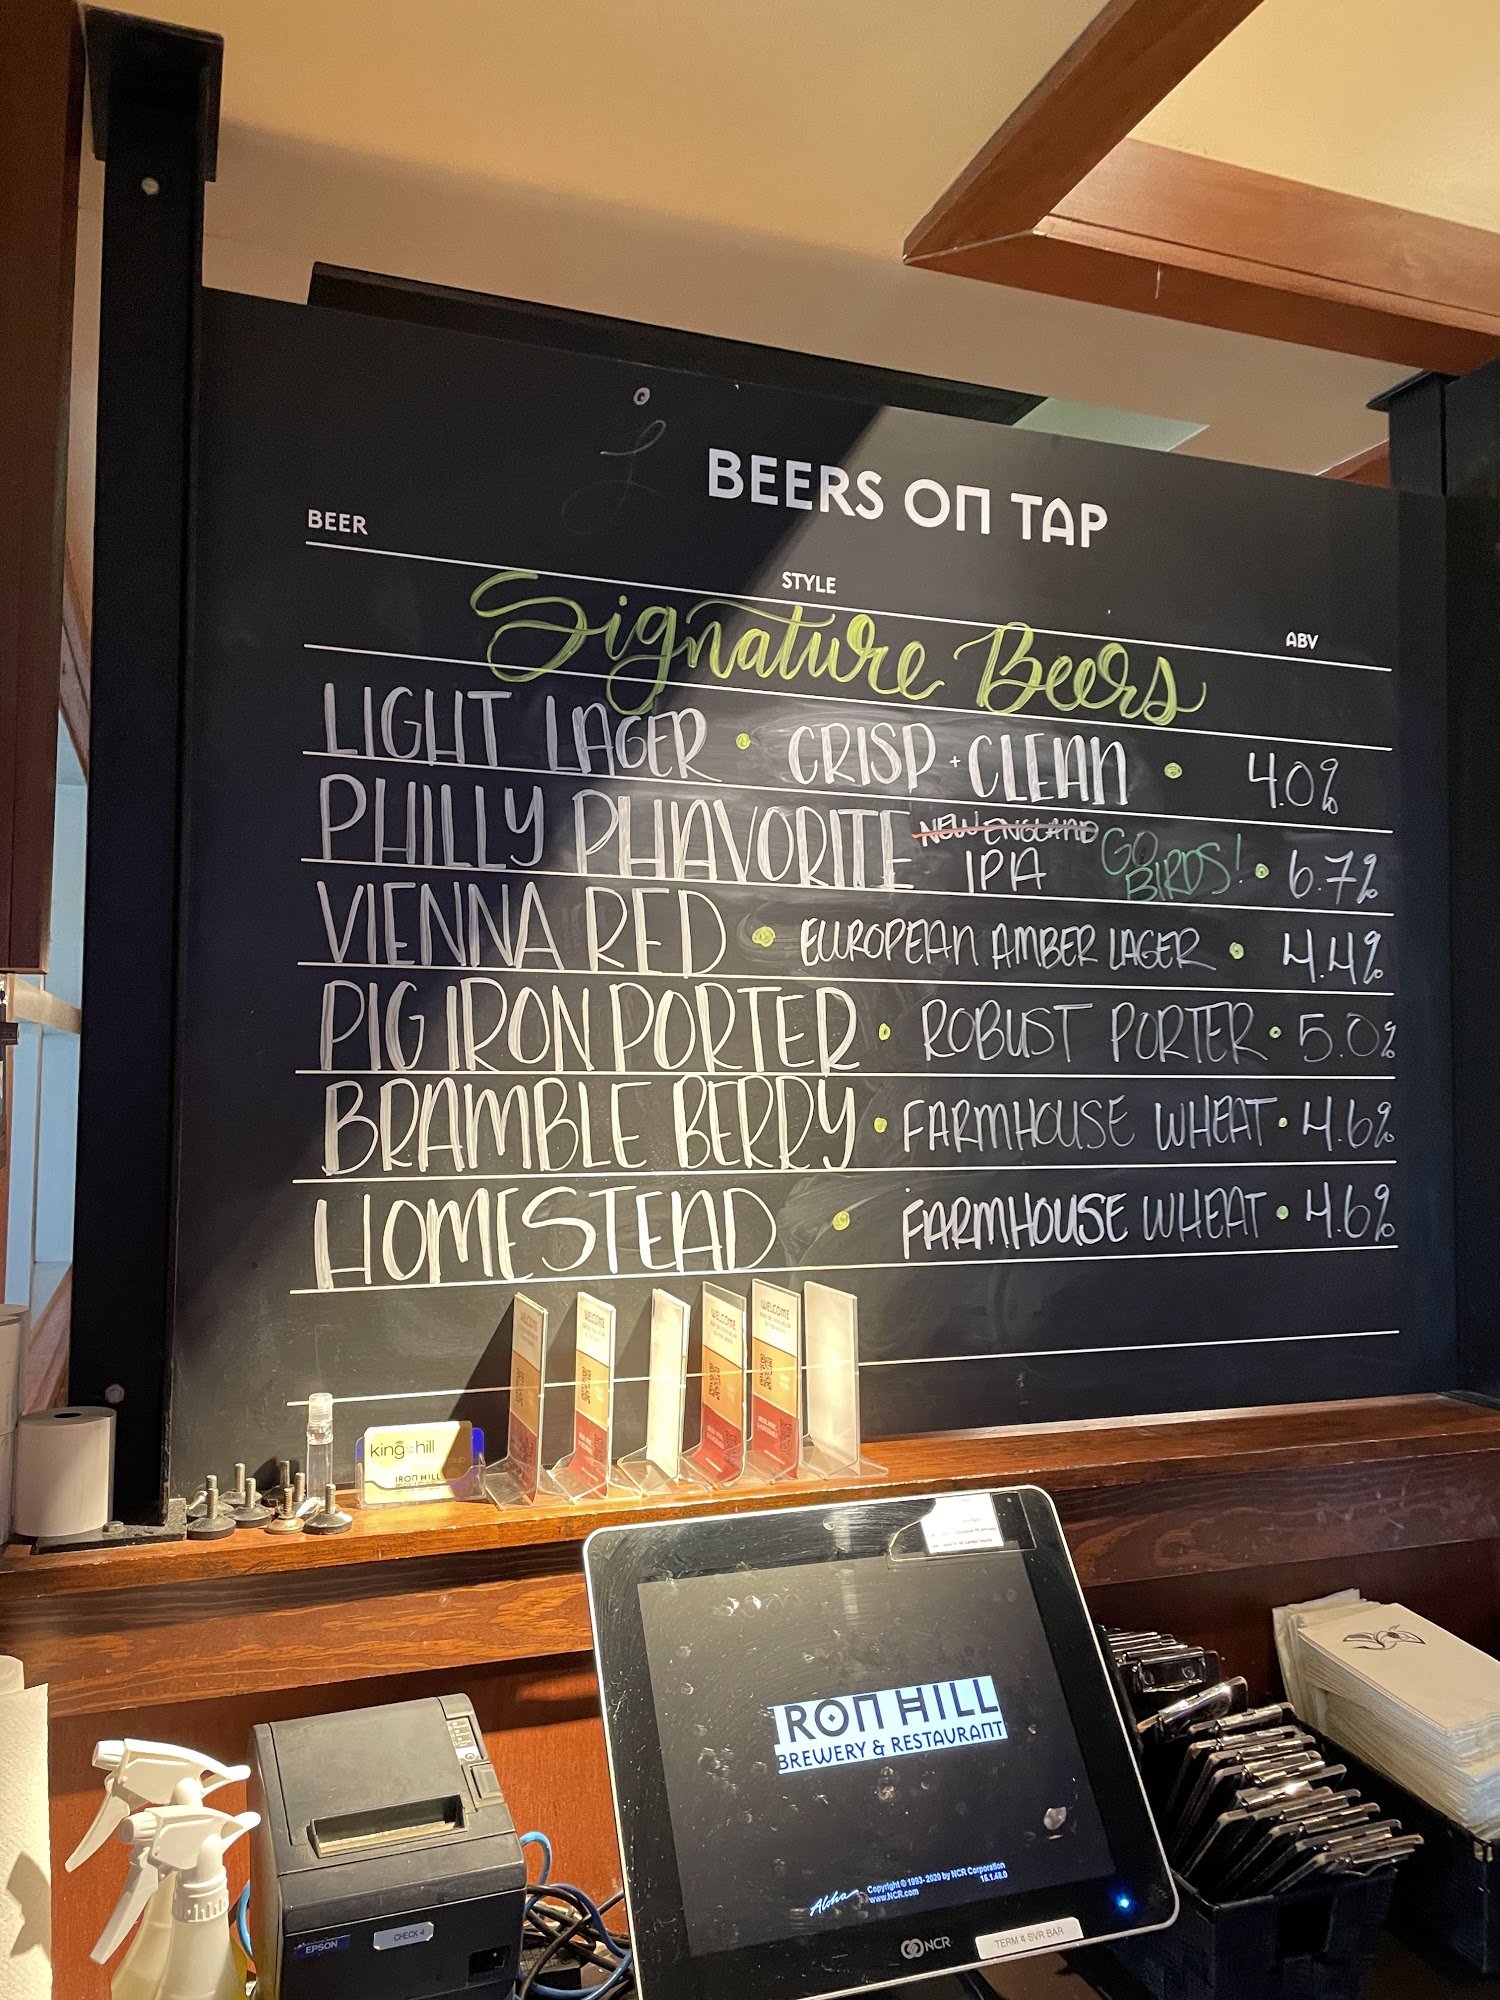 BEERS ON TAP
BEER
STYLE
ABV
Signature Beers
LIGHT LAGER • CRISP + CLEAN • 4.0%
PHILLY PHAVORITE NEW ENGLAND IPA GO BIRDS! • 6.7%
VIENNA RED • EUROPEAN AMBER LAGER • 4.4%
PIG IRON PORTER • ROBUST PORTER • 5.0%
BRAMBLE BERRY • FARMHOUSE WHEAT • 4.6%
HOMESTEAD • FARMHOUSE WHEAT • 4.6%
WELCOME
WELCOME
WELCOME
WELCOME
king of the hill
IRON HILL
IRON HILL
BREWERY & RESTAURANT
Aloha
Copyright © 1993-2020 by NCR Corporation
www.NCR.com
15.1.48.0
NCR
TERM 4 SVR BAR
EPSON
CHECK 4